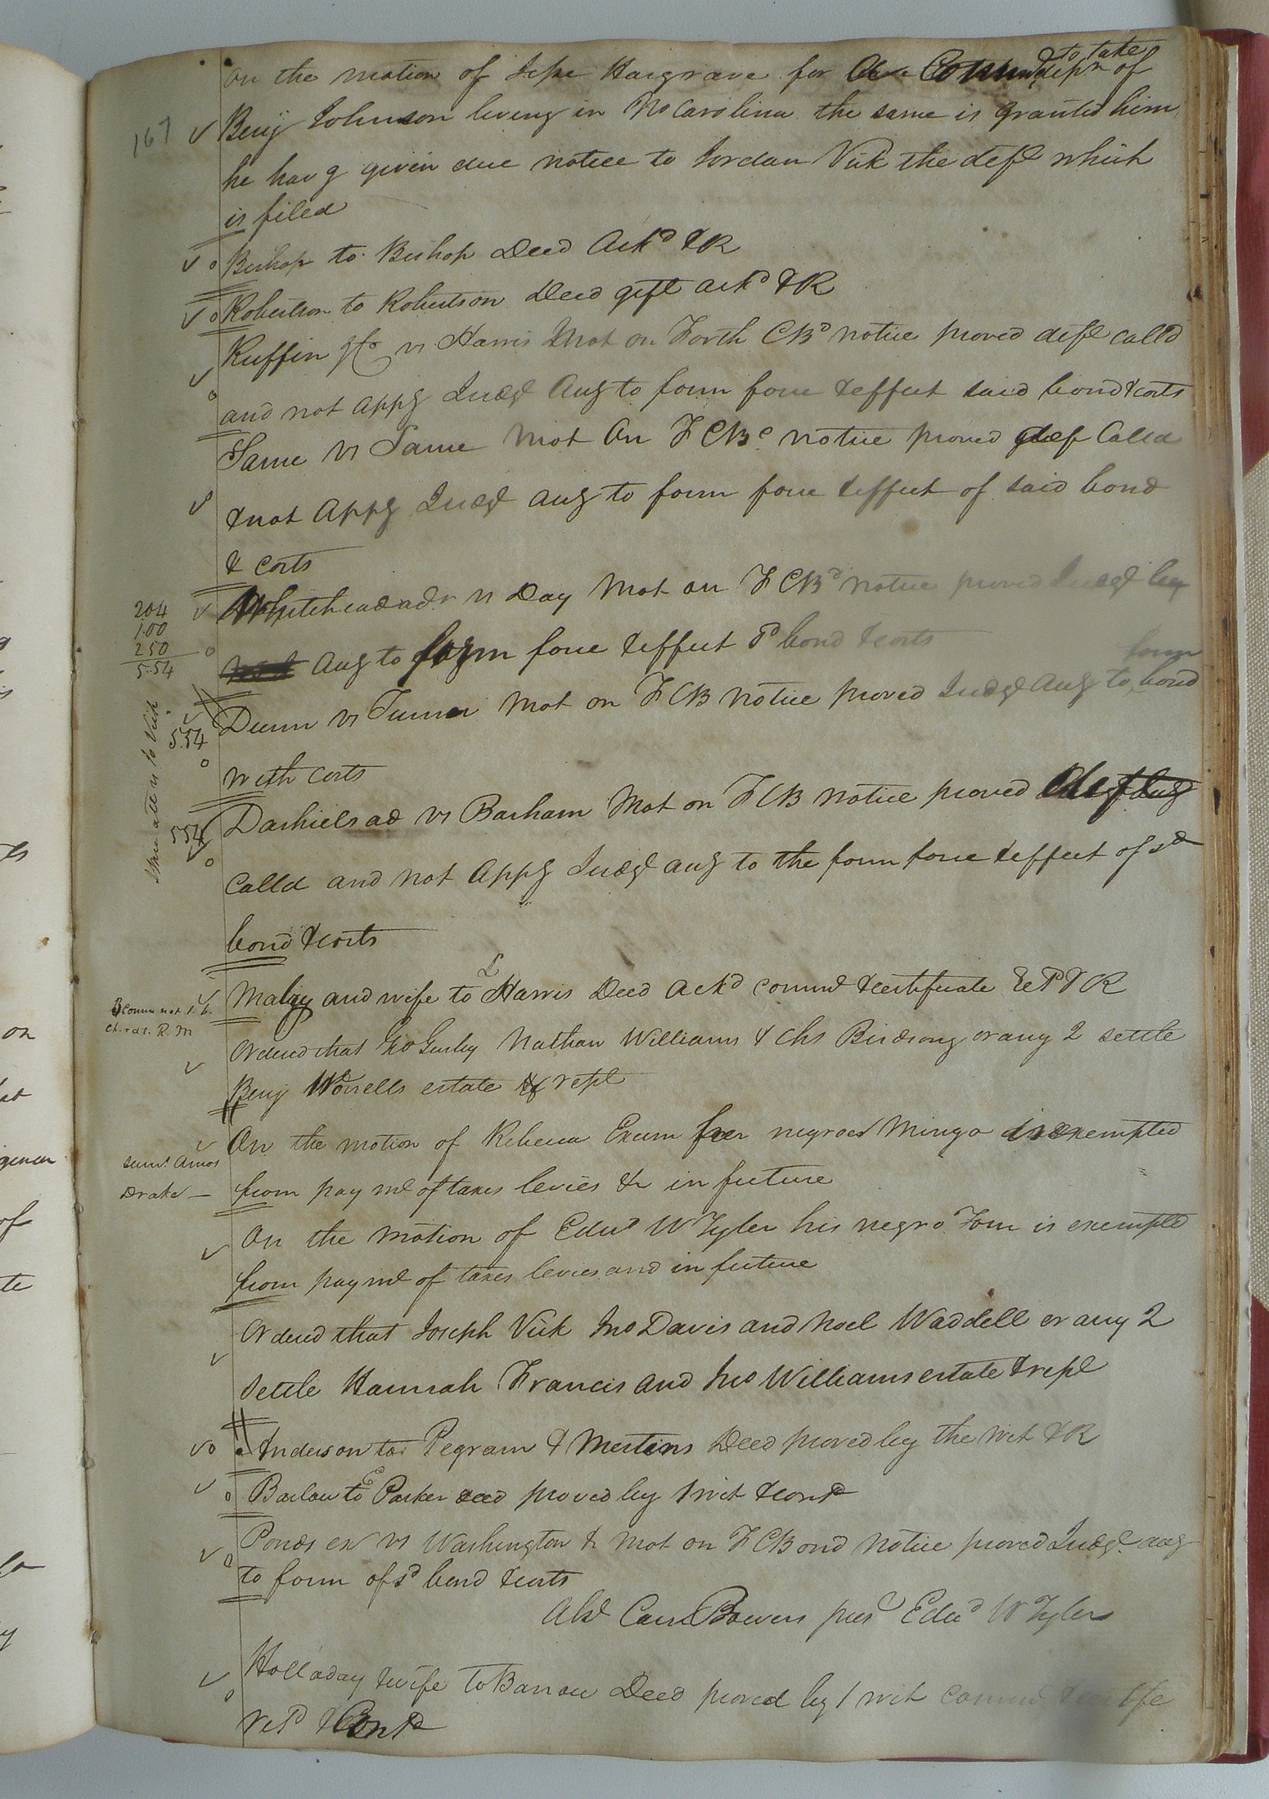 on the motion of Jesse Hargrave for a Comm to take depn of
167
Benj Johnson living in No Carolina the same is granted him
he havg given due notice to Jordan Vick the deft which
is filed
Bishop to Bishop Deed Ackd & R
Robertson to Robertson Deed gift ackd & R
Ruffin &c vs Harris Mot on Forth CBd notice proved deft calld
and not appg Judgt Aug to form force & effect said bond & costs
Same vs Same Mot on F CBd notice proved def Calld
& not Appg Judgt aug to form force & effect of said bond
& costs
Whitehead adr vs Day Mot on F CBd notice proved Judgt
204
100
250
5.54
Aug to form force & effect sd bond & costs
Dunn vs Turner Mot on F CB notice proved Judgt Aug to form bond
5.54
with costs
Dashiels ad vs Barham Mot on F CB notice proved
554
Calld and not Appg Judgt aug to the form force & effect of sd
bond & costs
Malry and wife to L Harris Deed Ackd commd & certificate retd & R
Ordered that Geo Gurley Nathan Williams & Chs Birdsong or any 2 settle
Benj Worrells estate & rept
On the motion of Rebecca Exum her negroe Mingo is exempted
sums Amos
Drake
from paymt of taxes levies &c in future
On the motion of Edwd W Tyler his negro Tom is exempted
from paymt of taxes levies and in future
Ordered that Joseph Vick Jno Davis and Noel Waddell or any 2
settle Hannah Francis and Jno Williams estate & rept
Anderson to Pegram & Mertins Deed proved by the wit & R
Barlow to E Parker deed proved by 1 wit & contd
Ponds ex vs Washington &c mot on F CBond notice proved Judgt aug
to form of sd bond & costs
Abst Carr Bowers prest Edwd W Tyler
Holladay & wife to Barrow Deed proved by 1 wit commd &
retd & Contd